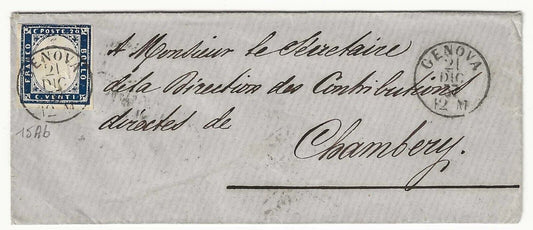 C. POSTE. 20
FRANCO
BOLLO
C. VENTI
GENOVA
21
DIC
12 M
15Ab
A Monsieur le Sécretaire
de la Direction des Contributions
directes de
Chambery.
GENOVA
21
DIC
12 M